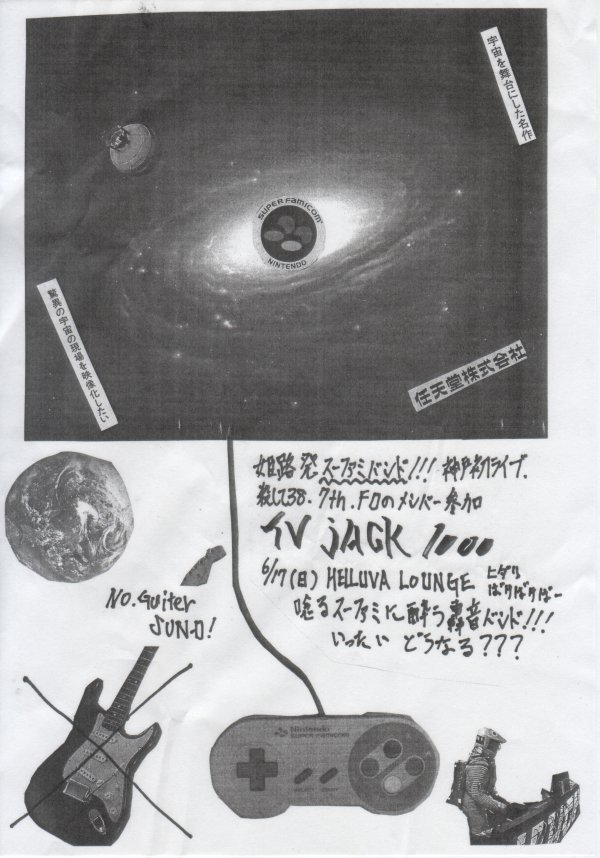 宇宙を舞台にした名作
SUPER FAMICOM
NINTENDO
驚異の宇宙の現場を映像化したい
任天堂株式会社
姫路発 スーファミバンド!!! 神戸初ライブ.
殺して38. 7th.FDのメンバー参加
TV JACK 1000
6/17(日) HELLUVA LOUNGE ヒダリ
ばりばりばー
唸るスーファミに酔う轟音バンド!!!
いったい どうなる???
NO.Guiter
SUND!
Nintendo
SUPER FAMICOM